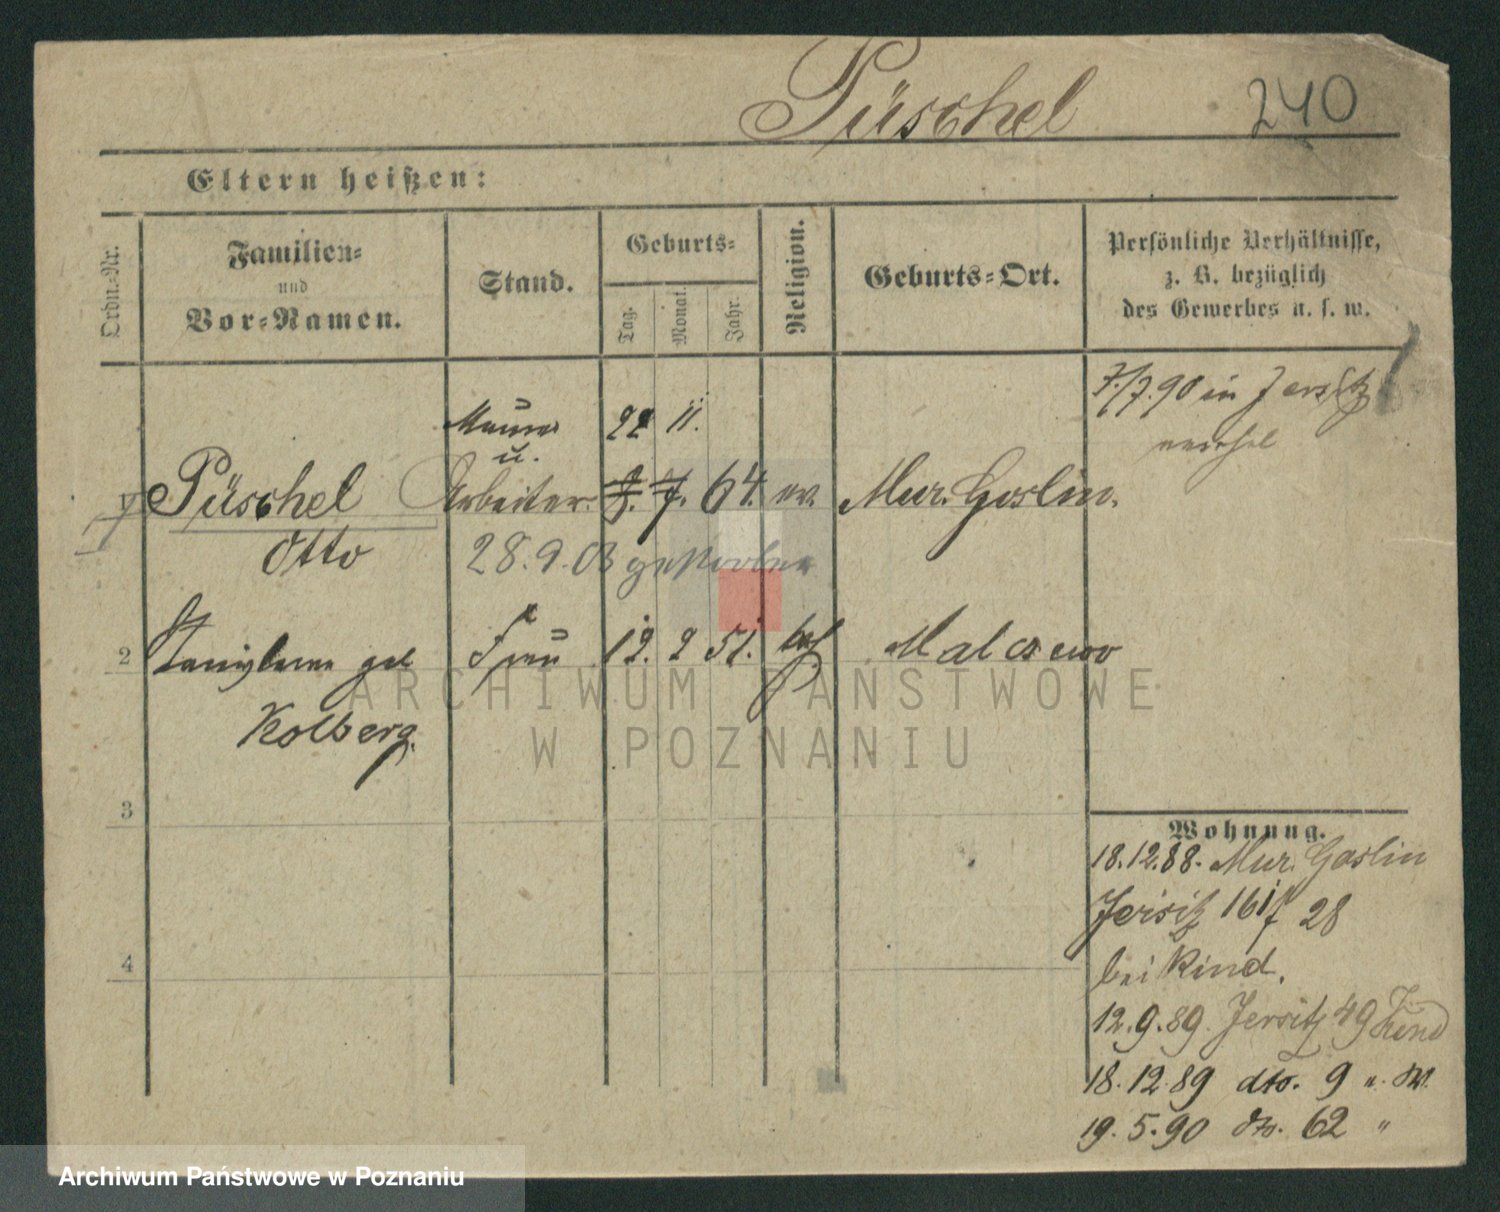 Püschel 240
Eltern heißen:
Ordn.-Nr.
Familien-
und
Vor-Namen.
Stand.
Geburts-
Tag.
Monat.
Jahr.
Religion.
Geburts-Ort.
Persönliche Verhältnisse,
z. B. bezüglich
des Gewerbes u. s. w.
7./7.90 in Jersitz
Maurer 22 11.
u.
Püschel Arbeiter. 7. 64. ev. Mur. Goslin.
Otto 28.9.03 gestorben
2 Stanislawa geb Frau 12. 2 51. kath. Malczewo
Kolberg.
ARCHIWUM PAŃSTWOWE
W POZNANIU
3
Wohnung.
18.12.88. Mur. Goslin
Jersitz 161 28
bei Kind.
4
12.9.89. Jersitz 49
18.12.89 dto. 9
19.5.90 dto. 62 "
Archiwum Państwowe w Poznaniu